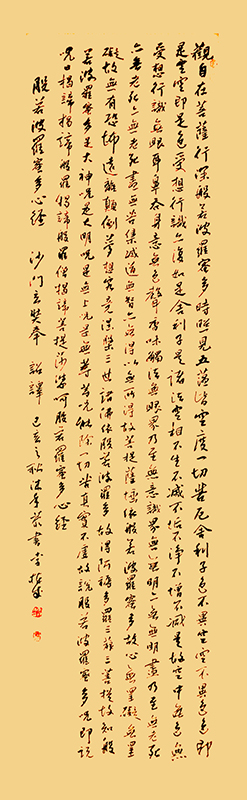 觀自在菩薩行深般若波羅蜜多時照見五蘊皆空度一切苦厄舍利子色不異空空不異色色即
是空空即是色受想行識亦復如是舍利子是諸法空相不生不滅不垢不淨不增不減是故空中無色無
受想行識無眼耳鼻舌身意無色聲香味觸法無眼界乃至無意識界無無明亦無無明盡乃至無老死
亦無老死盡無苦集滅道無智亦無得以無所得故菩提薩埵依般若波羅蜜多故心無罣礙無罣
礙故無有恐怖遠離顛倒夢想究竟涅槃三世諸佛依般若波羅蜜多故得阿耨多羅三藐三菩提故知般
若波羅蜜多是大神咒是大明咒是無上咒是無等等咒能除一切苦真實不虛故說般若波羅蜜多咒即說
咒曰揭諦揭諦般羅揭諦般羅僧揭諦菩提莎婆呵般若波羅蜜多心經
般若波羅蜜多心經 沙門玄奘奉 詔譯 己亥之秋